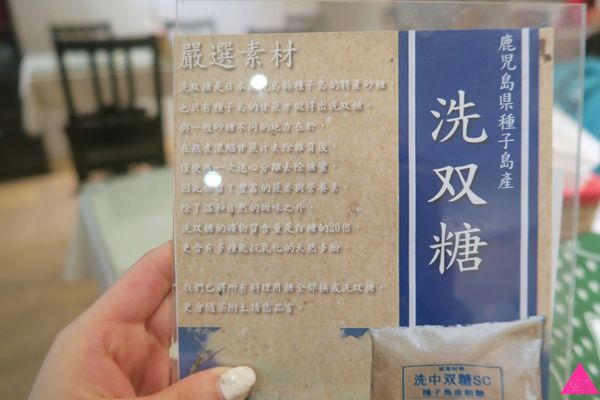 嚴選素材
洗双糖是日本鹿兒島縣種子島的特產砂糖，
也只有種子島的甘蔗才做得出洗双糖。
與一般砂糖不同的地方在於，
在熬煮濃縮甘蔗汁去除雜質後，
僅使用一次遠心分離去除糖蜜，
因此保留了豐富的蔗香與營養素，
除了溫和自然的甜味之外，
洗双糖的礦物質含量是白糖的20倍，
更含有多種能抗氧化的天然多酚。
我們已將所有料理用糖全部換成洗双糖，
更會隨茶附上請您品嘗。
鹿児島県種子島産
洗双糖
洗中双糖SC
種子島産粗糖